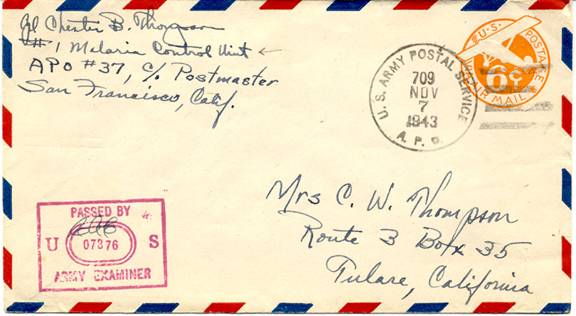 Chester B. Thompson
#1 Malaria Control Unit
APO #37, c/o Postmaster
San Francisco, Calif.
U.S. ARMY POSTAL SERVICE
709
NOV
7
1943
A.P.O.
U.S. POSTAGE
6¢
VIA AIR MAIL
Mrs C. W. Thompson
Route 3 Box 35
Tulare, California
PASSED BY
U 07376 S
ARMY EXAMINER